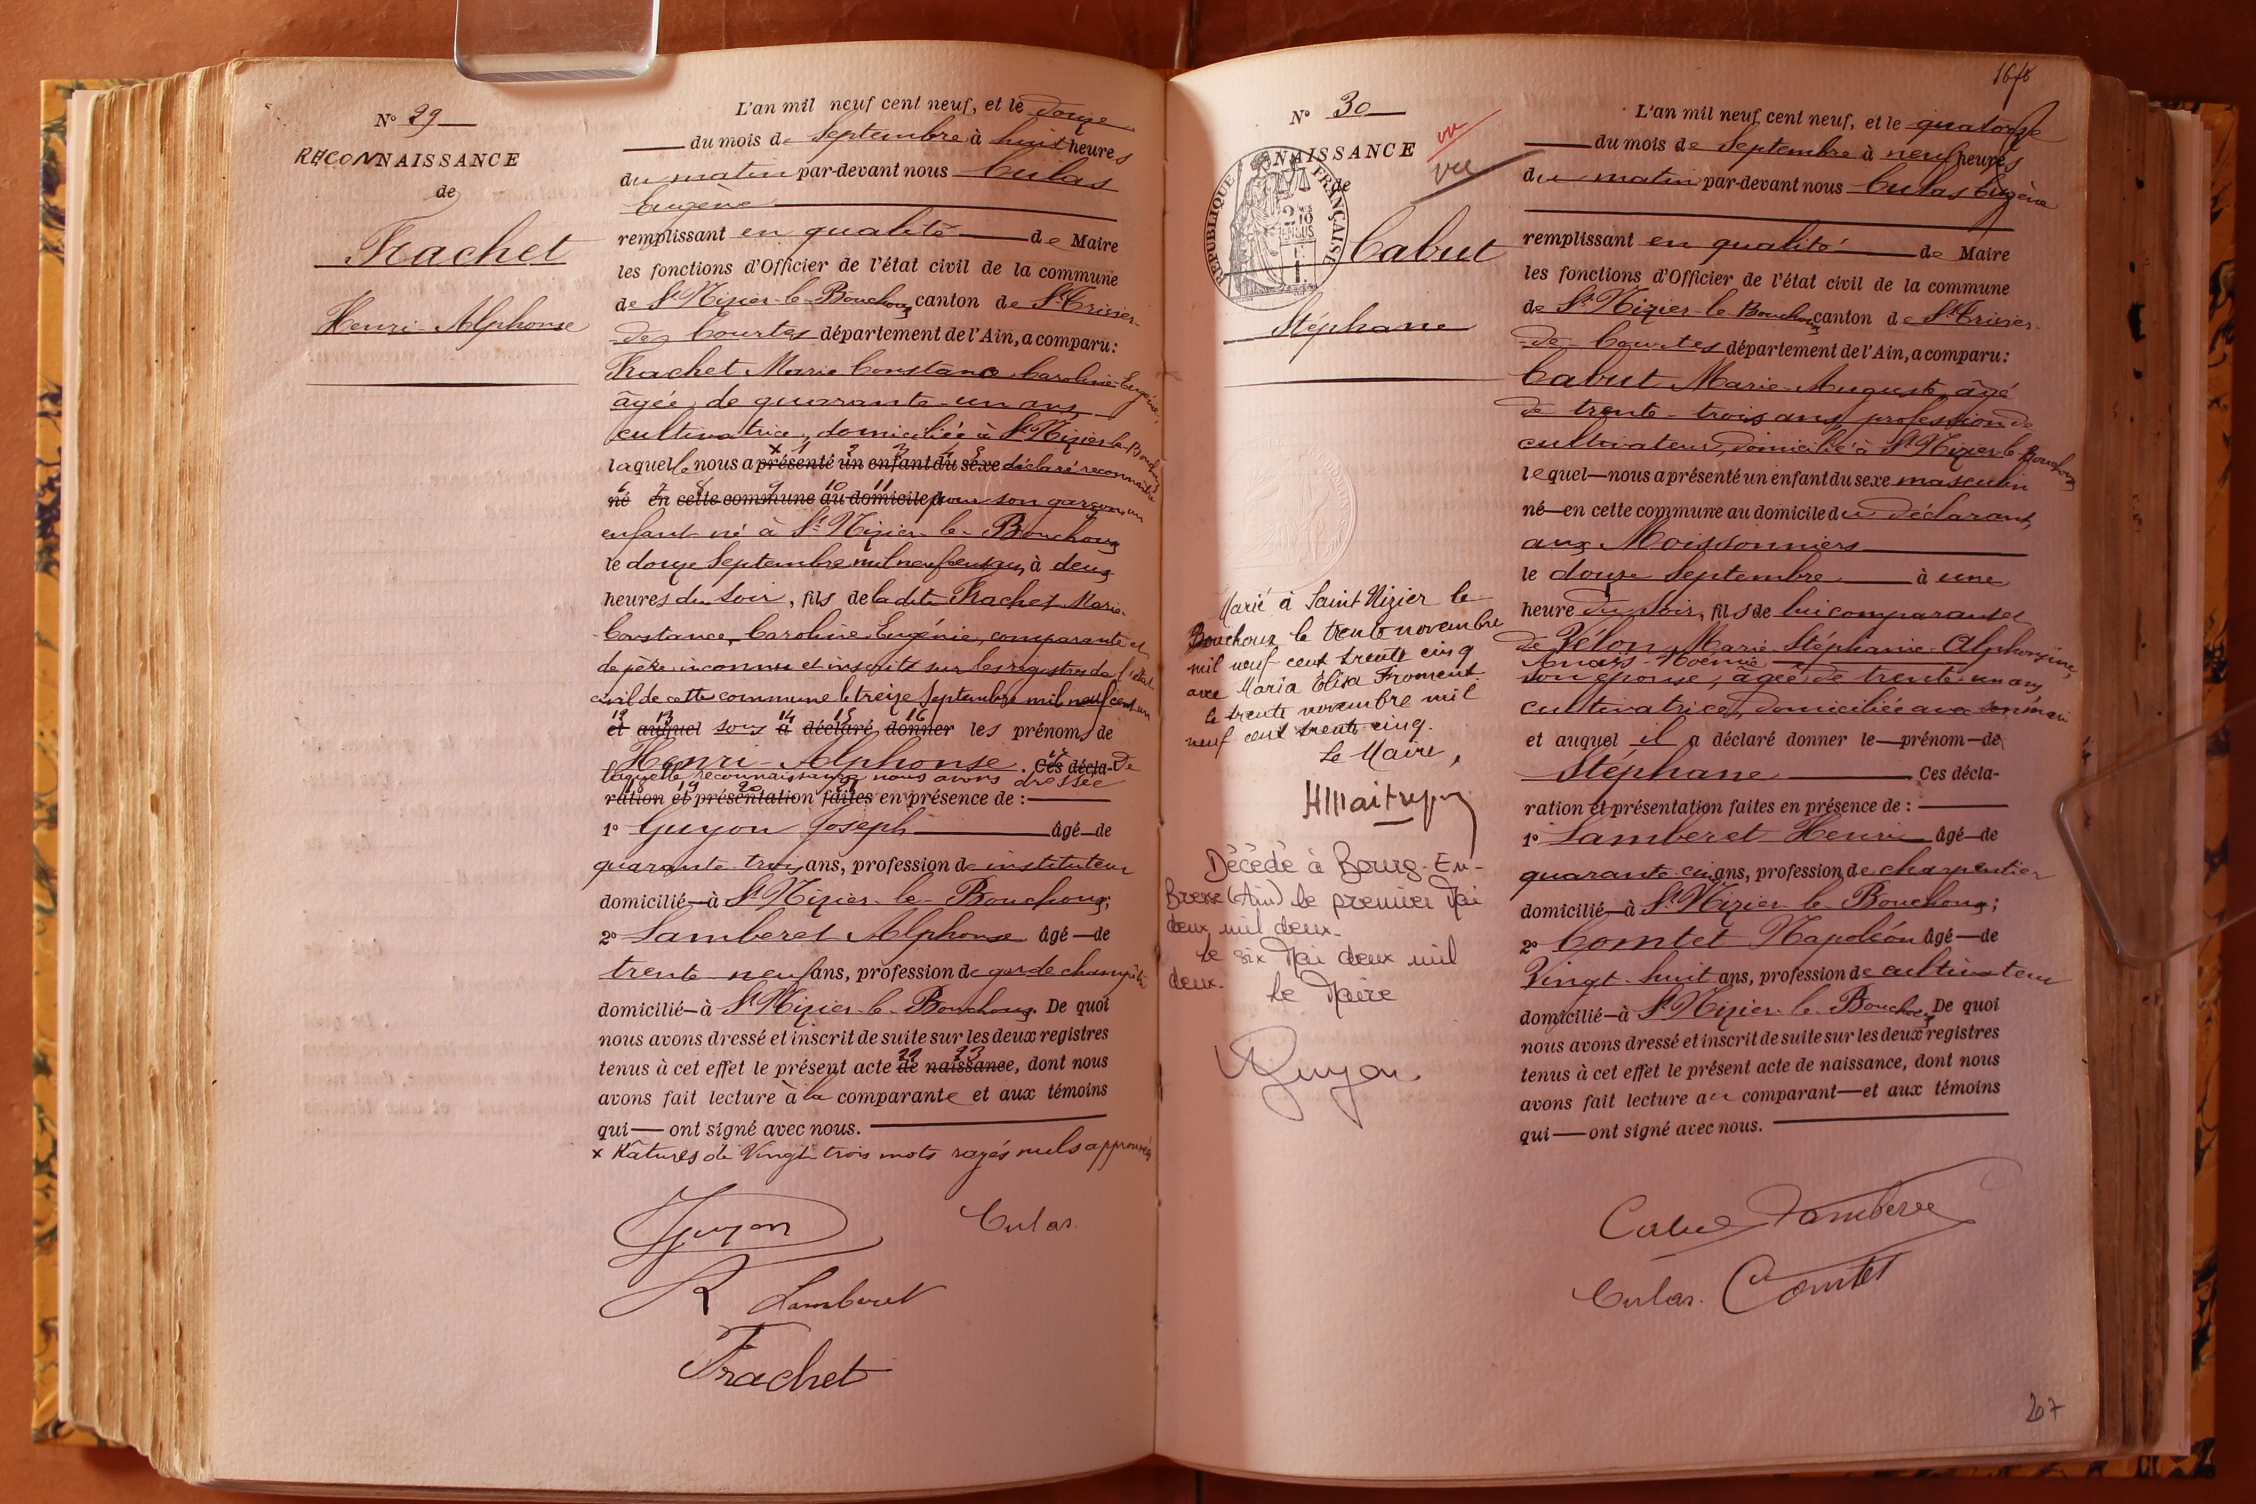 N° 29
RECONNAISSANCE
de
Frachet
Henri Alphonse
L'an mil neuf cent neuf, et le douze
du mois de Septembre à huit heures
du matin par-devant nous Culas
Eugène
remplissant en qualité de Maire
les fonctions d'Officier de l'état civil de la commune
de St Nizier-le-Bouchoux canton de St Trivier-
de Courtes département de l'Ain, a comparu:
Frachet Marie Constance Caroline-Eugénie,
âgée de quarante-un ans
cultivatrice, domiciliée à St Nizier-le-Bouchoux
laquelle nous a présenté un enfant du sexe déclaré reconnaître
né en cette commune au domicile pour son garçon, un
enfant né à St Nizier-le-Bouchoux
le douze Septembre mil neuf cent un, à deux
heures du soir, fils de la dite Frachet Marie-
Constance, Caroline Eugénie, comparante et
de père inconnu et inscrit sur les registres de l'état
civil de cette commune le treize Septembre mil neuf cent un
et auquel sous a déclaré donner les prénoms de
Henri-Alphonse. Ces décla- De
laquelle reconnaissance nous avons dressée
ration et présentation faites en présence de :
1° Guyon Joseph âgé de
quarante-trois ans, profession de instituteur
domicilié à St Nizier-le-Bouchoux;
2° Lamberet Alphonse âgé de
trente-neuf ans, profession de garde champêtre
domicilié à St Nizier-le-Bouchoux. De quoi
nous avons dressé et inscrit de suite sur les deux registres
tenus à cet effet le présent acte de naissance, dont nous
avons fait lecture à la comparante et aux témoins
qui ont signé avec nous.
x Ratures de Vingt trois mots rayés nuls approuvés
Guyon Culas
Lamberet
Frachet
1678
N° 30
vu
NAISSANCE
vu
de
REPUBLIQUE FRANÇAISE
Cabut
Stéphane
Marié à Saint Nizier le
Bouchoux le trente novembre
mil neuf cent trente cinq
avec Maria Élisa Froment
le trente novembre mil
neuf cent trente cinq.
Le Maire,
Décédé à Bourg-En-
Bresse (Ain) le premier Mai
deux mil deux.
le six Mai deux mil
deux.
Le Maire
Guyon
L'an mil neuf cent neuf, et le quatorze
du mois de Septembre à neuf heures
du matin par-devant nous Culas Eugène
remplissant en qualité de Maire
les fonctions d'Officier de l'état civil de la commune
de St Nizier-le-Bouchoux canton de St Trivier-
de Courtes département de l'Ain, a comparu:
Cabut Marie-Auguste âgé
de trente-trois ans, profession de
cultivateur, domicilié à St Nizier-le-Bouchoux
lequel nous a présenté un enfant du sexe masculin
né en cette commune au domicile du déclarant,
aux Moissonniers
le douze Septembre à une
heure du soir, fils de lui comparant et
de Vélon Marie Stéphanie Alphonsine,
Anaïs-Noémie
son épouse, âgée de trente-un ans,
cultivatrice, domiciliée avec son mari
et auquel il a déclaré donner le prénom de
Stéphane Ces décla-
ration et présentation faites en présence de :
1° Lamberet Henri âgé de
quarante-cinq ans, profession de charpentier
domicilié à St Nizier-le-Bouchoux;
2° Comtet Napoléon âgé de
Vingt-huit ans, profession de cultivateur
domicilié à St Nizier-le-Bouchoux De quoi
nous avons dressé et inscrit de suite sur les deux registres
tenus à cet effet le présent acte de naissance, dont nous
avons fait lecture au comparant et aux témoins
qui ont signé avec nous.
Cabut Lamberet
Culas. Comtet
207